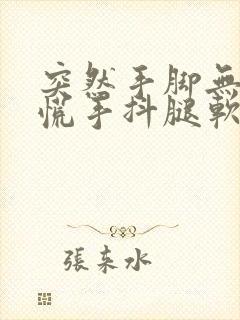 突然手脚無
慌手抖腿軟
張东水